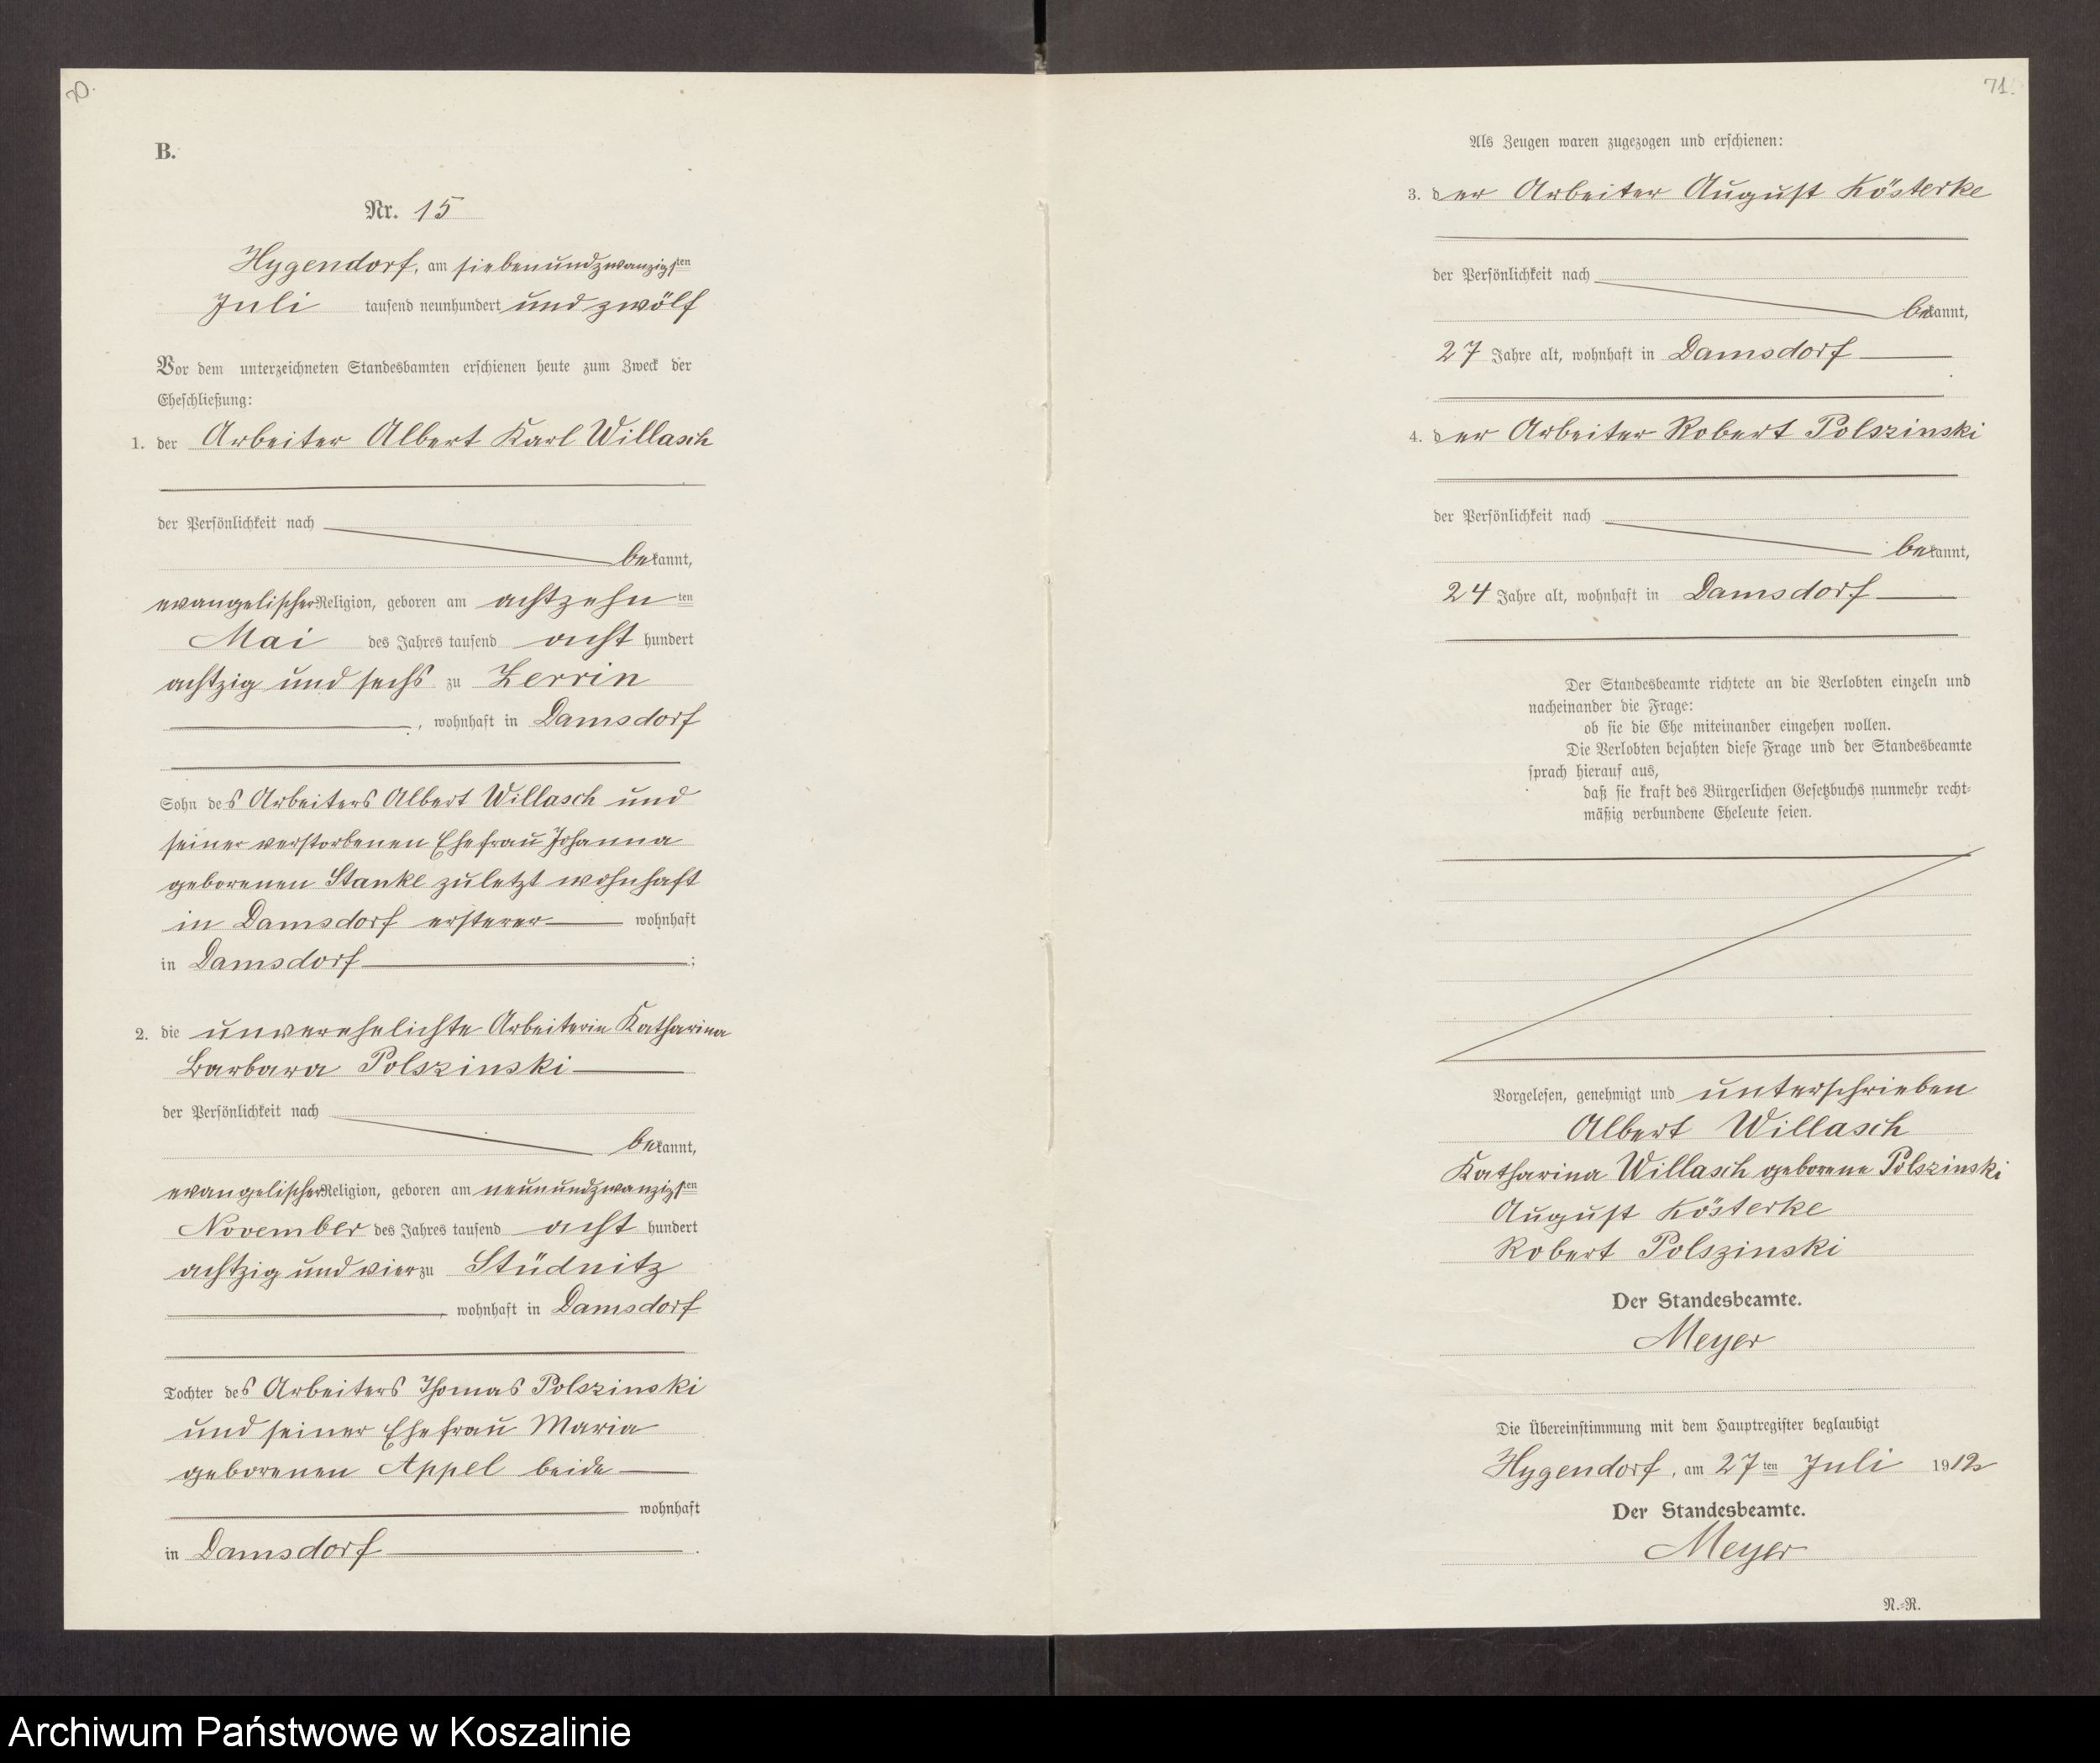 B.
Nr. 15
Hygendorf, am siebenundzwanzigsten
Juli tausend neunhundert und zwölf
Vor dem unterzeichneten Standesbamten erschienen heute zum Zweck der
Eheschließung:
1. der Arbeiter Albert Karl Willasch
der Persönlichkeit nach
bekannt,
evangelischer Religion, geboren am achtzehnten
Mai des Jahres tausend acht hundert
achtzig und sechs zu Zerrin
, wohnhaft in Damsdorf
Sohn des Arbeiters Albert Willasch und
seiner verstorbenen Ehefrau Johanna
geborenen Stanke zuletzt wohnhaft
in Damsdorf ersterer wohnhaft
in Damsdorf ;
2. die unverehelichte Arbeiterin Katharina
Barbara Polszinski
der Persönlichkeit nach
bekannt,
evangelischer Religion, geboren am neunundzwanzigsten
November des Jahres tausend acht hundert
achtzig und vier zu Stüdnitz
, wohnhaft in Damsdorf
Tochter des Arbeiters Thomas Polszinski
und seiner Ehefrau Maria
geborenen Appel beide
wohnhaft
in Damsdorf .
71.
Als Zeugen waren zugezogen und erschienen:
3. der Arbeiter August Kösterke
der Persönlichkeit nach
bekannt,
27 Jahre alt, wohnhaft in Damsdorf
4. der Arbeiter Robert Polszinski
der Persönlichkeit nach
bekannt,
24 Jahre alt, wohnhaft in Damsdorf
Der Standesbeamte richtete an die Verlobten einzeln und
nacheinander die Frage:
ob sie die Ehe miteinander eingehen wollen.
Die Verlobten bejahten diese Frage und der Standesbeamte
sprach hierauf aus,
daß sie kraft des Bürgerlichen Gesetzbuchs nunmehr recht-
mäßig verbundene Eheleute seien.
Vorgelesen, genehmigt und unterschrieben
Albert Willasch
Katharina Willasch geborene Polszinski
August Kösterke
Robert Polszinski
Der Standesbeamte.
Meyer
Die Übereinstimmung mit dem Hauptregister beglaubigt
Hygendorf, am 27ten Juli 1912
Der Standesbeamte.
Meyer
N.-R.
Archiwum Państwowe w Koszalinie